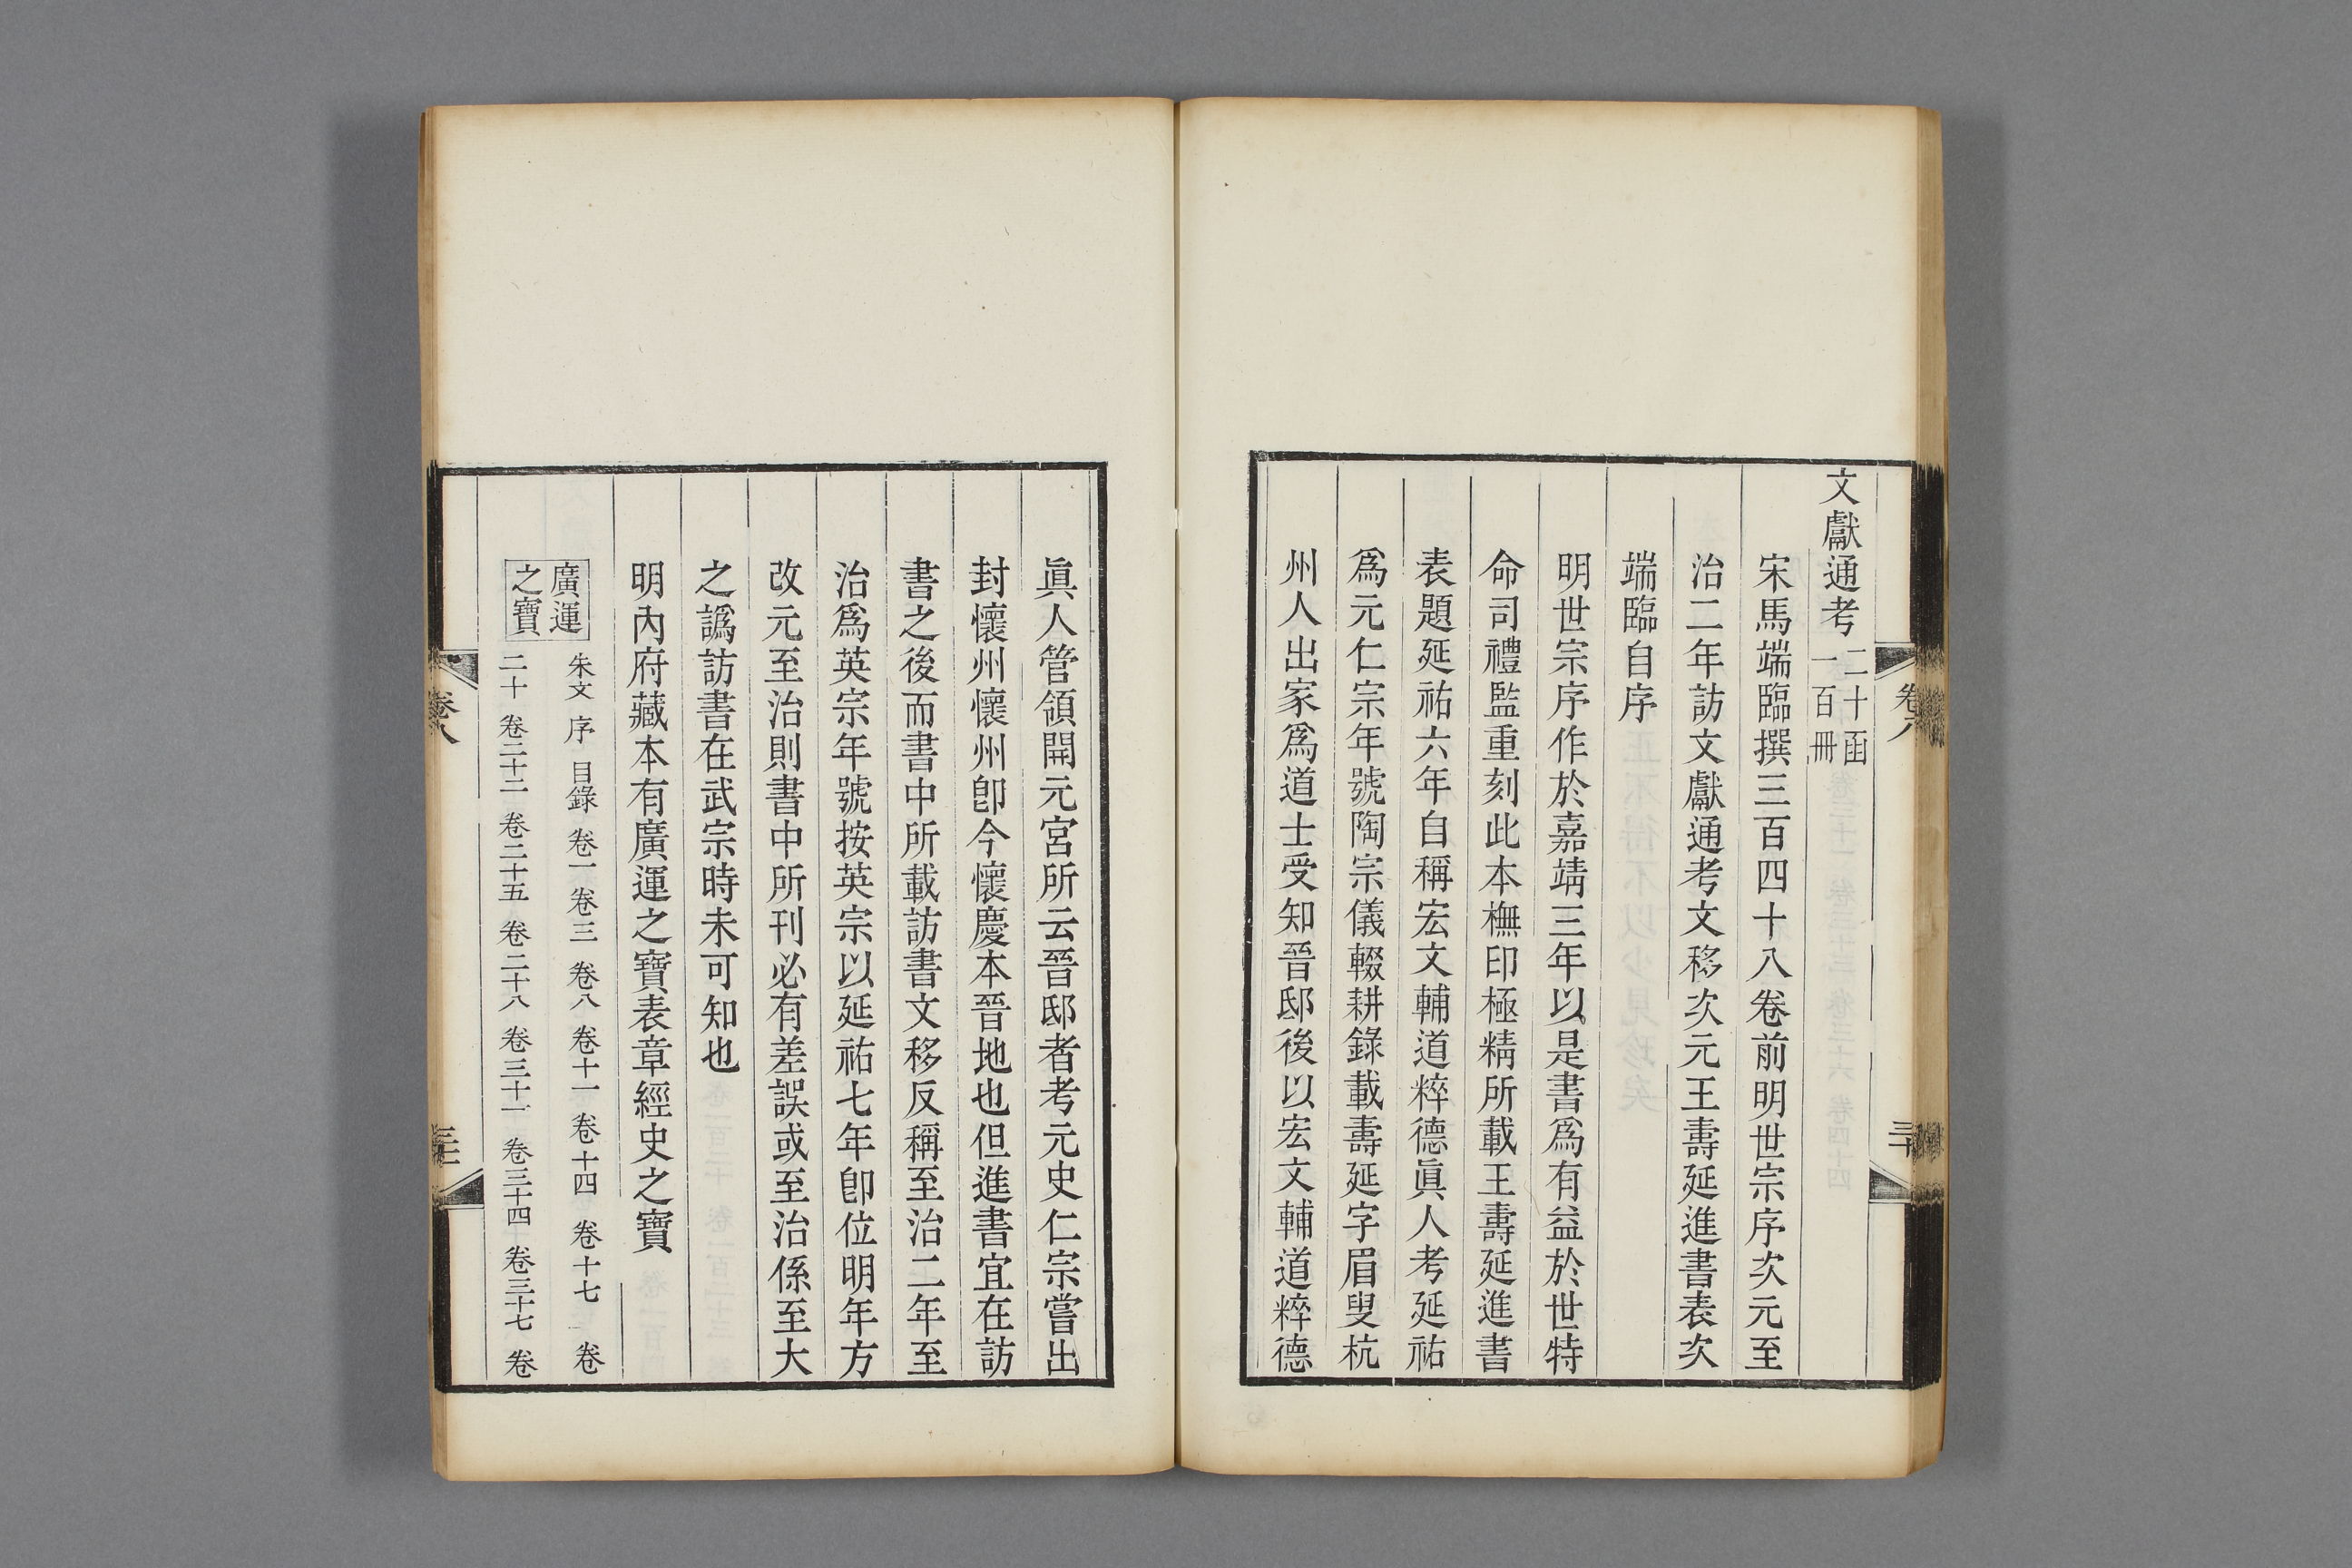 文獻通考 二十函
一百冊
宋馬端臨撰三百四十八卷前明世宗序次元至
治二年訪文獻通考文移次元王壽延進書表次
端臨自序
明世宗序作於嘉靖三年以是書爲有益於世特
命司禮監重刻此本橅印極精所載王壽延進書
表題延祐六年自稱宏文輔道粹德眞人考延祐
爲元仁宗年號陶宗儀輟耕錄載壽延字眉叟杭
州人出家爲道士受知晉邸後以宏文輔道粹德
卷八
三十
眞人管領開元宮所云晉邸者考元史仁宗嘗出
封懷州懷州卽今懷慶本晉地也但進書宜在訪
書之後而書中所載訪書文移反稱至治二年至
治爲英宗年號按英宗以延祐七年卽位明年方
改元至治則書中所刊必有差誤或至治係至大
之譌訪書在武宗時未可知也
明內府藏本有廣運之寶表章經史之寶
廣運
之寶
朱文 序 目錄 卷一 卷三 卷八 卷十一 卷十四 卷十七 卷
二十 卷二十二 卷二十五 卷二十八 卷三十一 卷三十四 卷三十七 卷
卷八